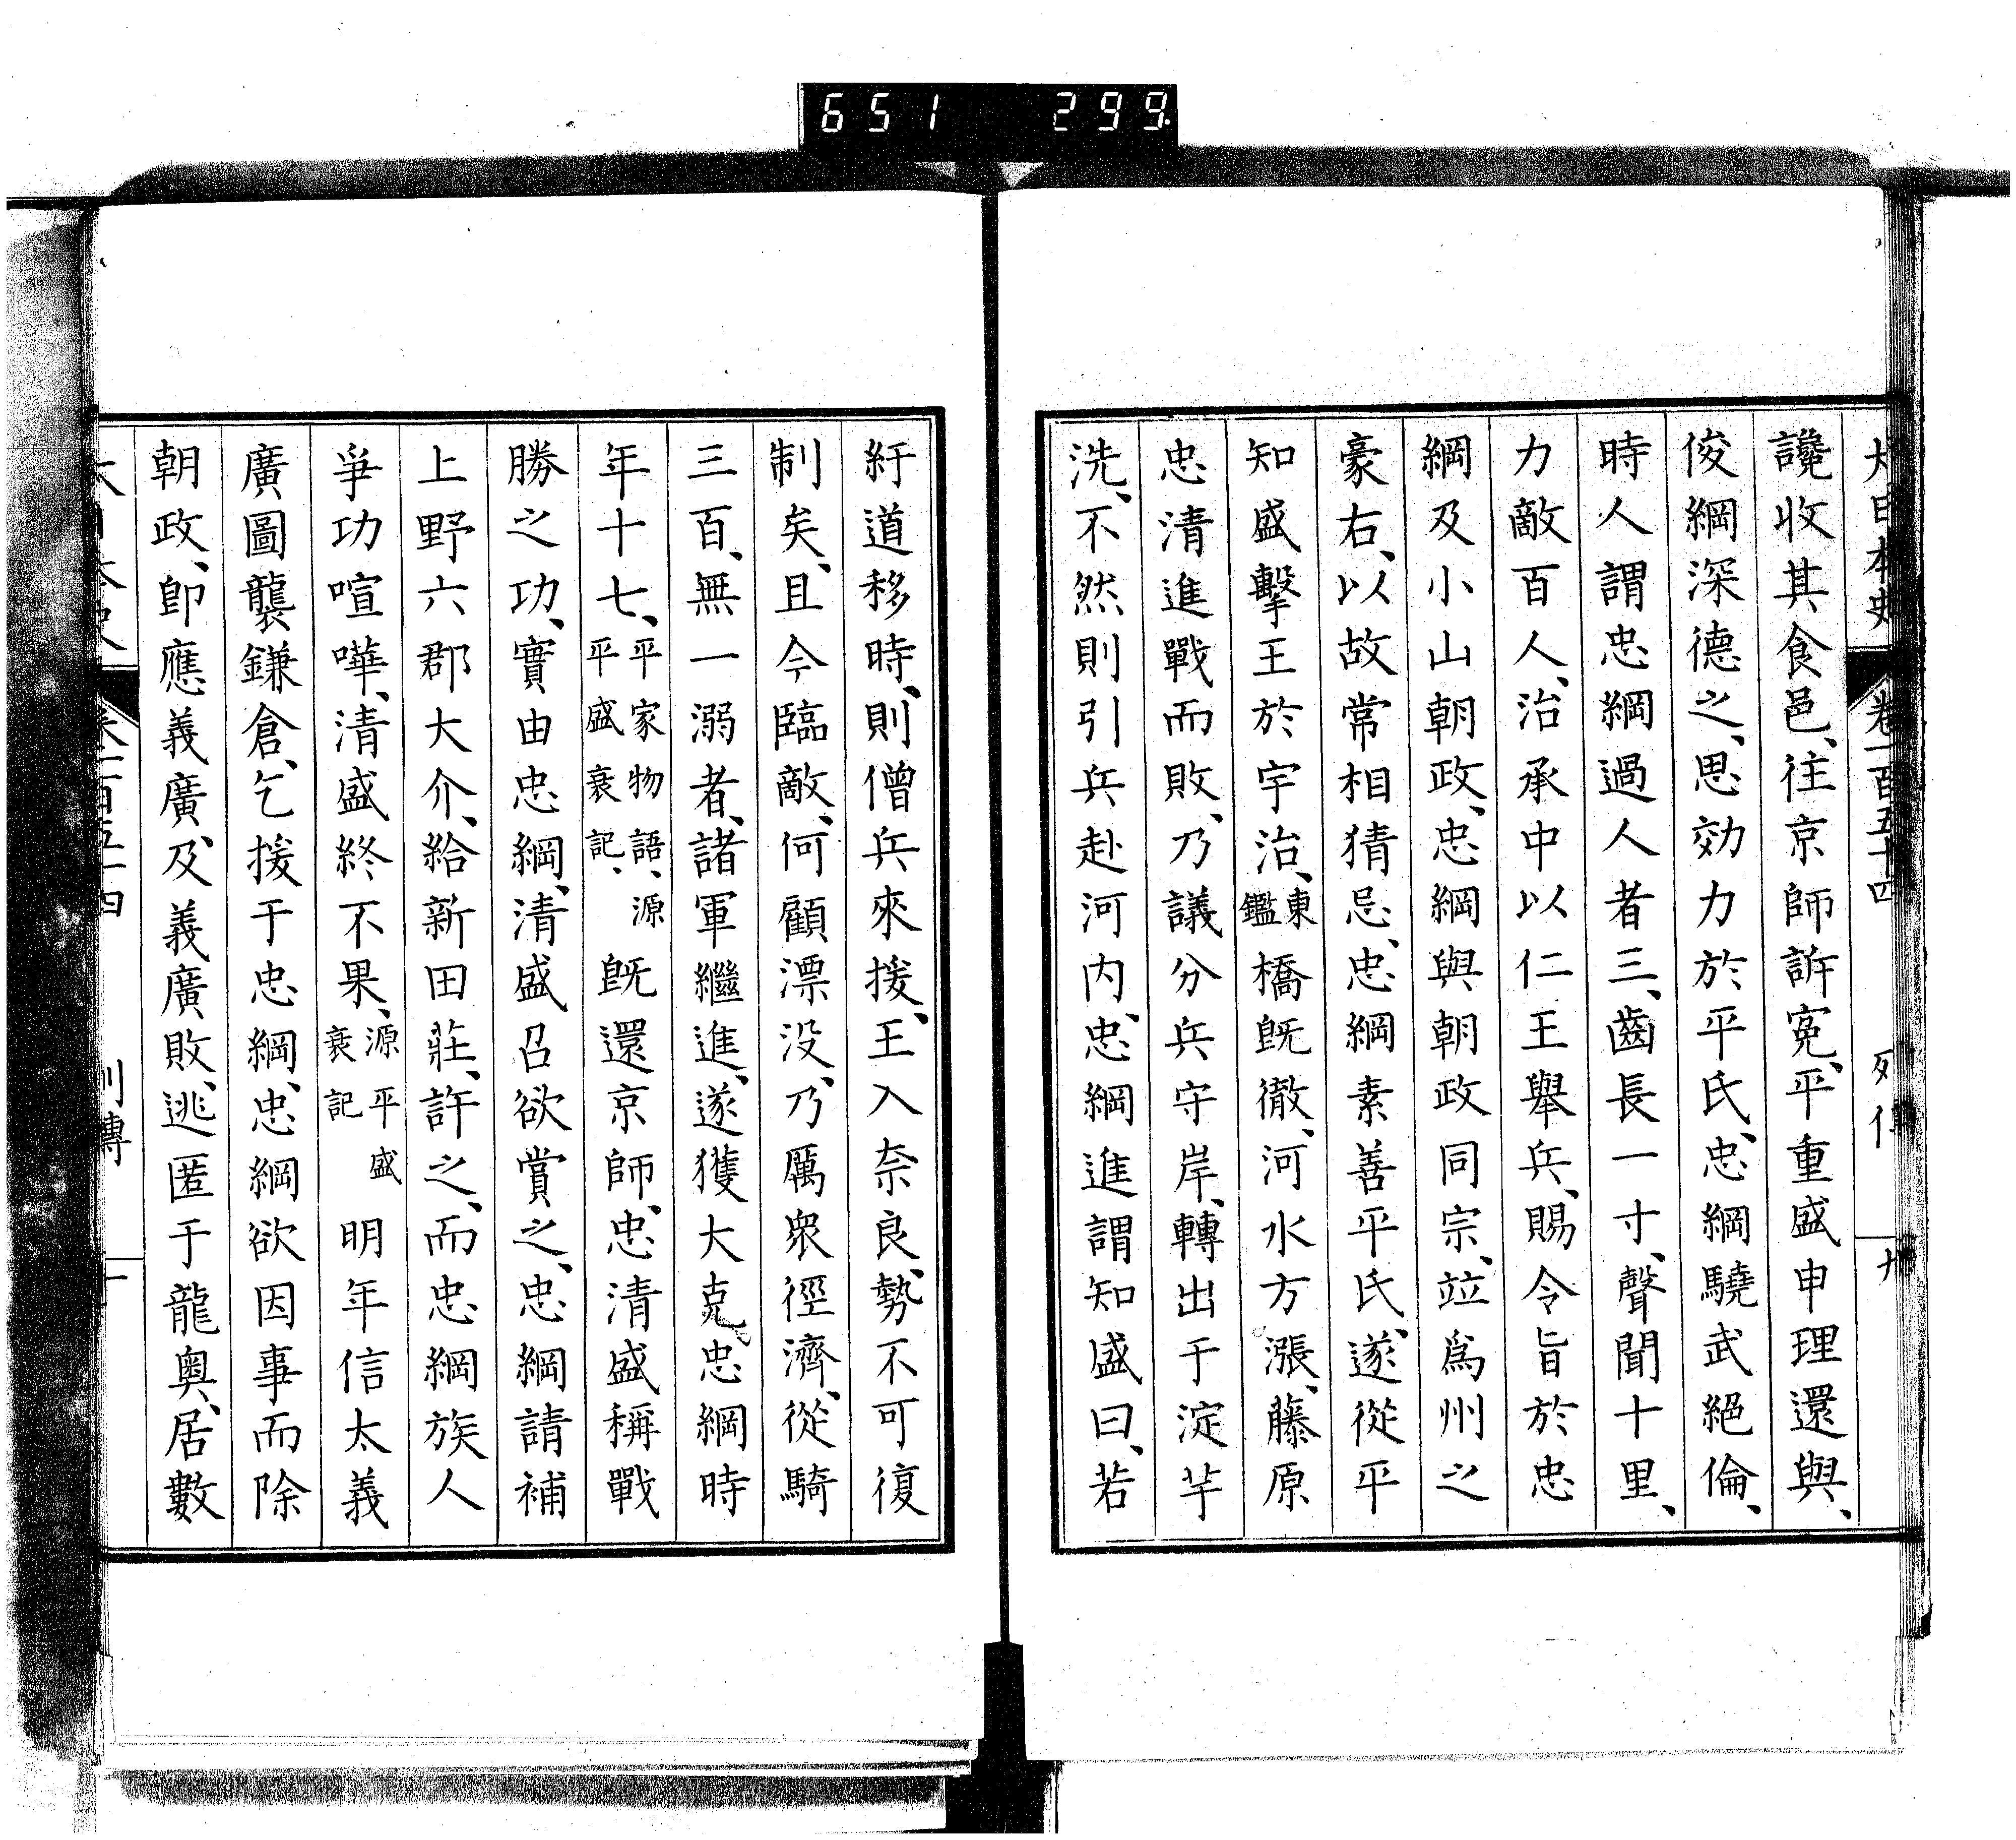 651 299
大日本史 卷一百五十四 列傳 九
讒收其食邑、往京師訴寃、平重盛申理還與、
俊綱深德之、思効力於平氏、忠綱驍武絕倫、
時人謂忠綱過人者三、齒長一寸、聲聞十里、
力敵百人、治承中以仁王舉兵、賜令旨於忠
綱及小山朝政、忠綱與朝政同宗、竝爲州之
豪右、以故常相猜忌、忠綱素善平氏、遂從平
知盛擊王於宇治、東鑑橋旣徹、河水方漲、藤原
忠清進戰而敗、乃議分兵守岸、轉出于淀芋
洗、不然則引兵赴河内、忠綱進謂知盛曰、若
紆道移時、則僧兵來援、王入奈良、勢不可復
制矣、且今臨敵、何顧漂没、乃厲衆徑濟、從騎
三百、無一溺者、諸軍繼進、遂獲大克、忠綱時
年十七、平家物語、源平盛衰記、旣還京師、忠清盛稱戰
勝之功、實由忠綱、清盛召欲賞之、忠綱請補
上野六郡大介、給新田莊、許之、而忠綱族人
爭功喧嘩、清盛終不果、源平盛衰記明年信太義
廣圖襲鎌倉、乞援于忠綱、忠綱欲因事而除
朝政、卽應義廣、及義廣敗、逃匿于龍奥、居數
大日本史 卷一百五十四 列傳 十